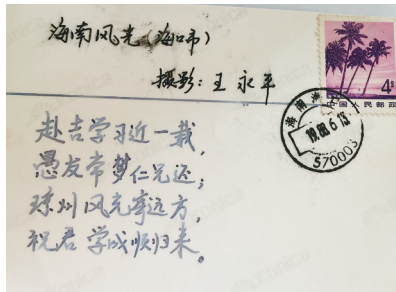 海南风光(海口市)
摄影:王永平
4分
中国人民邮政
海南海口
1988.6.13
570003
赴吉学习近一载,
愚友常梦仁兄还;
琼州风光寄远方,
祝君学成顺归来。